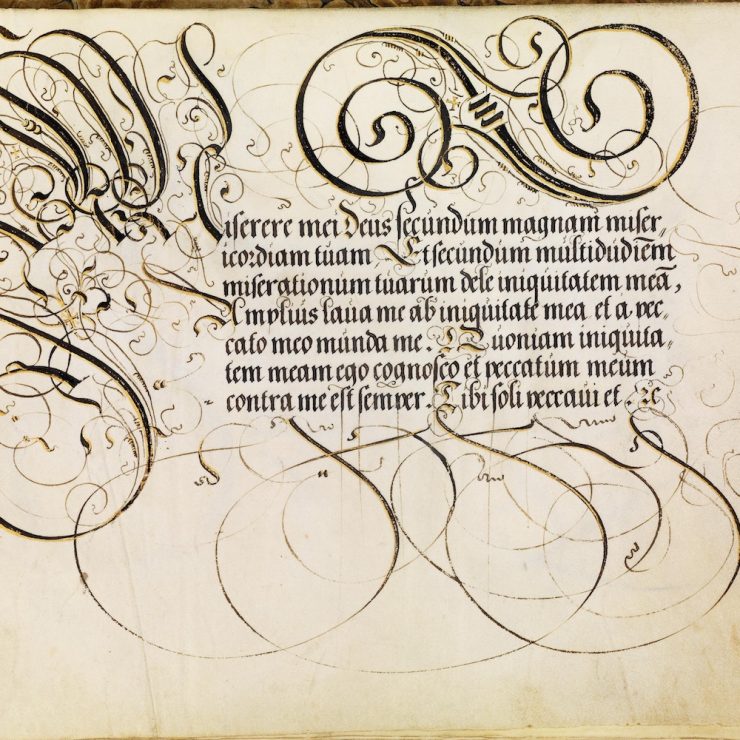 Miserere mei Deus secundum magnam miser,
icordiam tuam Et secundum multidudiēm
miserationum tuarum dele iniquitatem meā,
Amplius laua me ab iniquitate mea et a pec,
cato meo munda me. Quoniam iniquita,
tem meam ego cognosco et peccatum meum
contra me est semper. Tibi soli peccaui et ꝛc